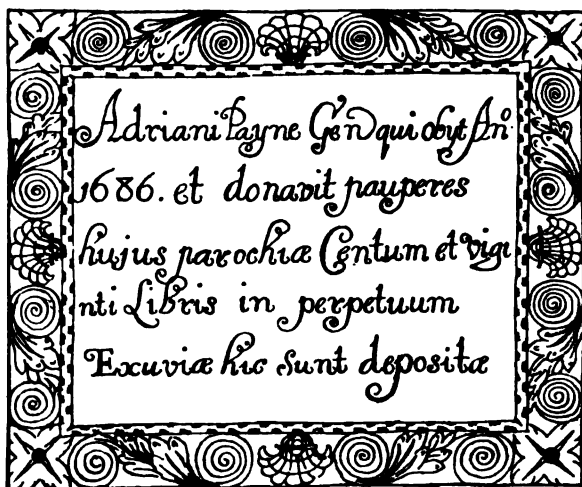 Adriani Payne Gen qui obyt An⁰
1686. et donavit pauperes
hujus parochiæ Centum et vigi
nti Libris in perpetuum
Exuviæ hic sunt depositæ